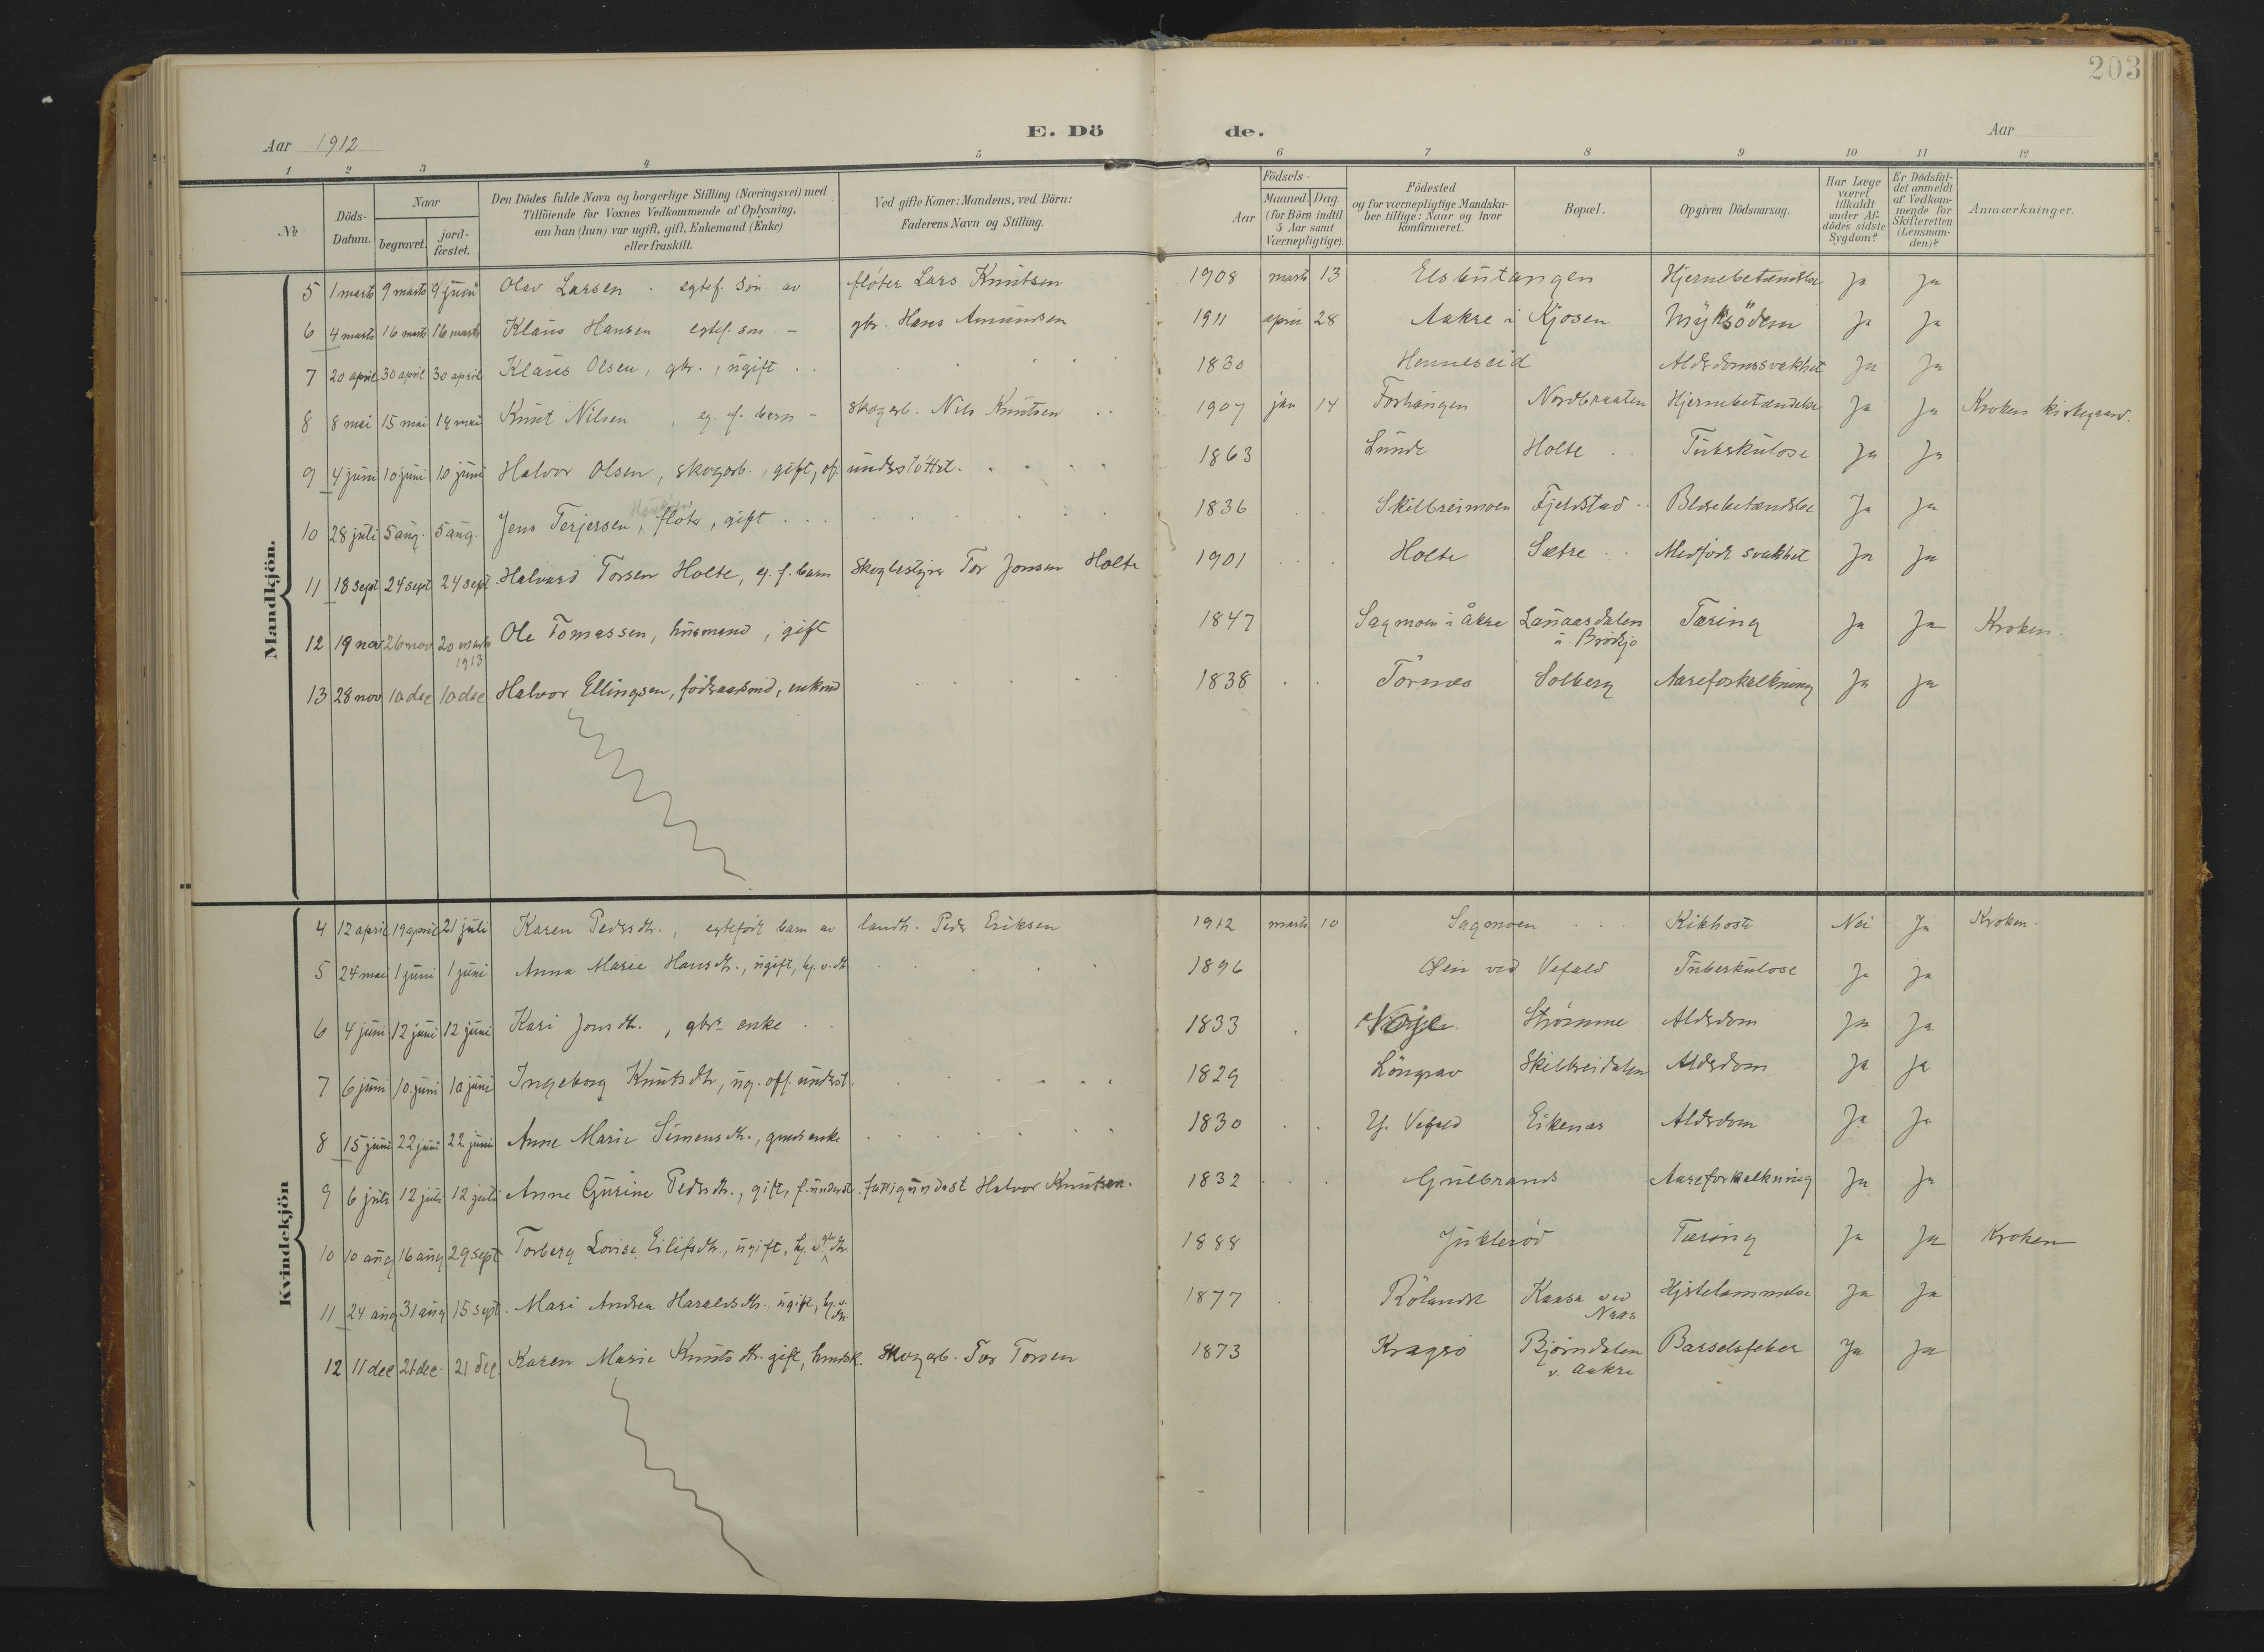 203
Aar 1912
E. Dö de.
Aar
1 2 3 4 5 6 7 8 9 10 11 12
№
Döds-Datum.
Naar
begravet.
jord-fæstet.
Den Dödes fulde Navn og borgerlige Stilling (Næringsvei) med
Tilföiende for Voxnes Vedkommende af Oplysning,
om han (hun) var ugift, gift, Enkemand (Enke)
eller fraskilt.
Ved gifte Koner: Mandens, ved Börn:
Faderens Navn og Stilling.
Aar
Födsels-
Maaned. Dag.
(for Börn indtil
5 Aar samt
Værnepligtige).
Födested
og for værnepligtige Mandska-
ber tillige: Naar og hvor
konfirmeret.
Bopæl.
Opgiven Dödsaarsag.
Har Læge
været
tilkaldt
under Af-
dödes sidste
Sygdom?
Er Dödsfal-
det anmeldt
af Vedkom-
mende for
Skifteretten
(Lensman-
den)?
Anmærkninger.
Mandkjön.
5 1 marts 9 marts 9 juni Olav Larsen egtef. sön av fløter Lars Knutsen 1908 marts 13 Elsbutangen Hjernebetændelse Ja Ja
6 4 marts 16 marts 16 marts Klaus Hansen egtef. son - gbr. Hans Amundsen 1911 april 28 Aakre i Kjosen Ja Ja
7 20 april 30 april 30 april Klaus Olsen, gbr., ugift 1830 Henneseid Alderdomssvakhet Ja Ja
8 8 mai 15 mai 19 mai Knut Nilsen, eg. f. barn - skogarb. Nils Knutsen 1907 jan 14 Nordbraaten Hjernebetændelse Ja Ja Kroken kirkegaard.
9 4 juni 10 juni 10 juni Halvor Olsen, skogarb., gift, of. understöttet. 1863 Lunde Holte Tuberkulose Ja Ja
10 28 juli 5 aug. 5 aug. Jens Terjersen, fløter, gift 1836 Skilbreimoen Fjeldstad Blærebetændelse Ja Ja
11 18 sept 24 sept 24 sept Halvard Torsen Holte, eg. f. barn Skogbestyrer Tor Jonsen Holte 1901 Holte Sætre Medfødt svakhet Ja Ja
12 19 nov 26 nov 20 marts 1913 Ole Tomassen, husmand, gift 1847 Sagmoen i Åkre Lanaardalen i Tæring Ja Ja Kroken.
13 28 nov 10 dec 10 dec Halvor Ellingsen, föderaadsmd, enkmd 1838 Törnes Solberg Aareforkalkning Ja Ja
Kvindekjön
4 12 april 19 april 21 juli Karen Pedersdtr., egtefödt barn av landh. Peder Eriksen 1912 marts 10 Sagmoen Kikhoste Nei Ja Kroken.
5 24 mai 1 juni 1 juni Anna Marie Hansdtr., ugift, hj. v. dtr 1896 ved Vefald Tuberkulose Ja Ja
6 4 juni 12 juni 12 juni Kari Jonsdtr., gbrs enke 1833 Strømme Alderdom Ja Ja
7 6 juni 10 juni 10 juni Ingeborg Knutsdtr, ug. off. underst. 1829 Löngrav Skilbreidalen Alderdom Ja Ja
8 15 juni 22 juni 22 juni Anne Marie Simensdtr., gmds enke 1830 Y. Vefald Eikenæs Alderdom Ja Ja
9 6 juli 12 juli 12 juli Anne Gurine Pedersdtr., gift, f. underst. fattigunderst Halvor Knutsen. 1832 Gulbrands Aareforkalkning Ja Ja
10 10 aug 16 aug 29 sept Torberg Lovise Eilifsdtr., ugift, hj. v. gbr dtr. 1888 Juklerød Tæring Ja Ja Kroken
11 24 aug 31 aug 15 sept. Mari Andrea Haraldsdtr., ugift, hj. v. dtr. 1877 Rölandse Kaasa ved Naas Hjertelammelse Ja Ja
12 11 dec 21 dec 21 dec. Karen Marie Knutsdtr. gift, hmdsk. Skogarb. Tor Torsen 1873 Kragerø Bjørndalen v. Aakre Barselsfeber Ja Ja